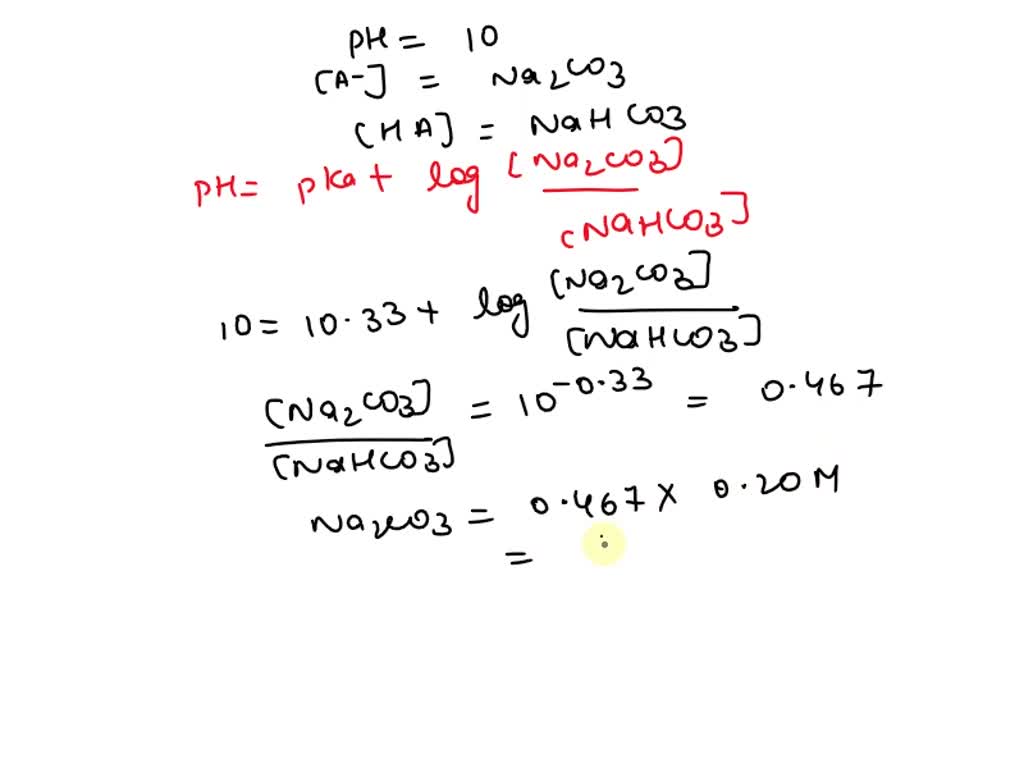 pH = 10
[A-] = Na2CO3
[HA] = NaHCO3
pH = pka + log [Na2CO3]
[NaHCO3]
10 = 10.33 + log [Na2CO3]
[NaHCO3]
[Na2CO3] = 10^-0.33 = 0.467
[NaHCO3]
Na2CO3 = 0.467 x 0.20 M
=